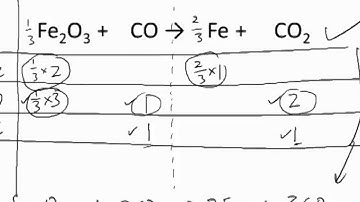 ⅓Fe₂O₃ + CO → ⅔Fe + CO₂ ✓
⅓×2 ⅔×1
⅓×3 ✓1 ✓2
✓1 ✓1